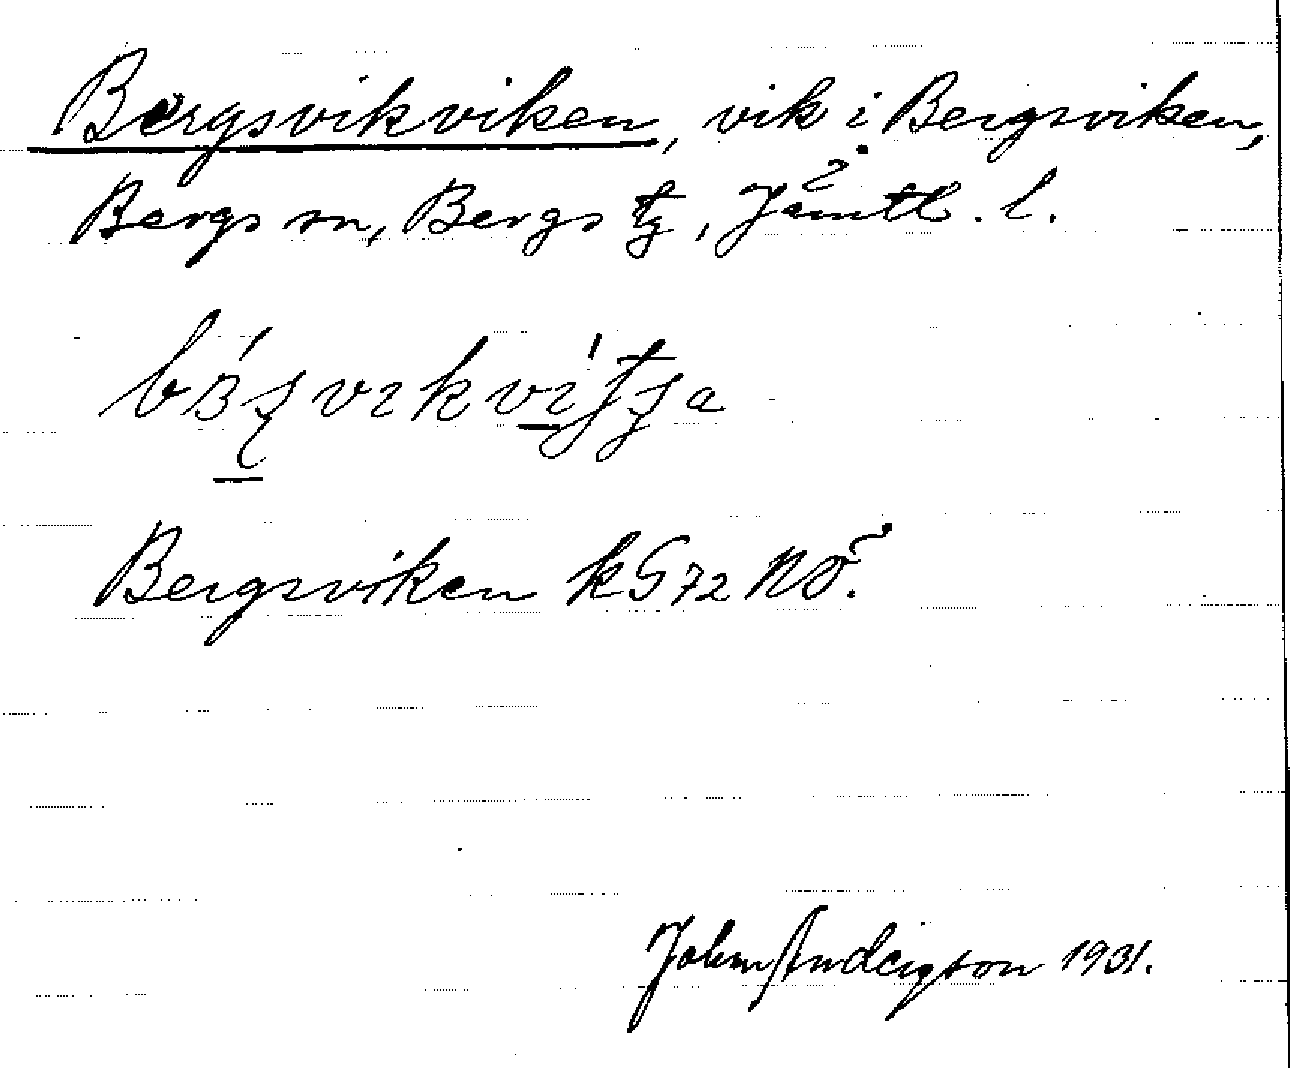 Bergsvikviken, vik i Bergsviken,
Bergs sn, Bergs tg, Jämtl. l.
Bergsviken kG72NÖ.
John Andersson 1931.